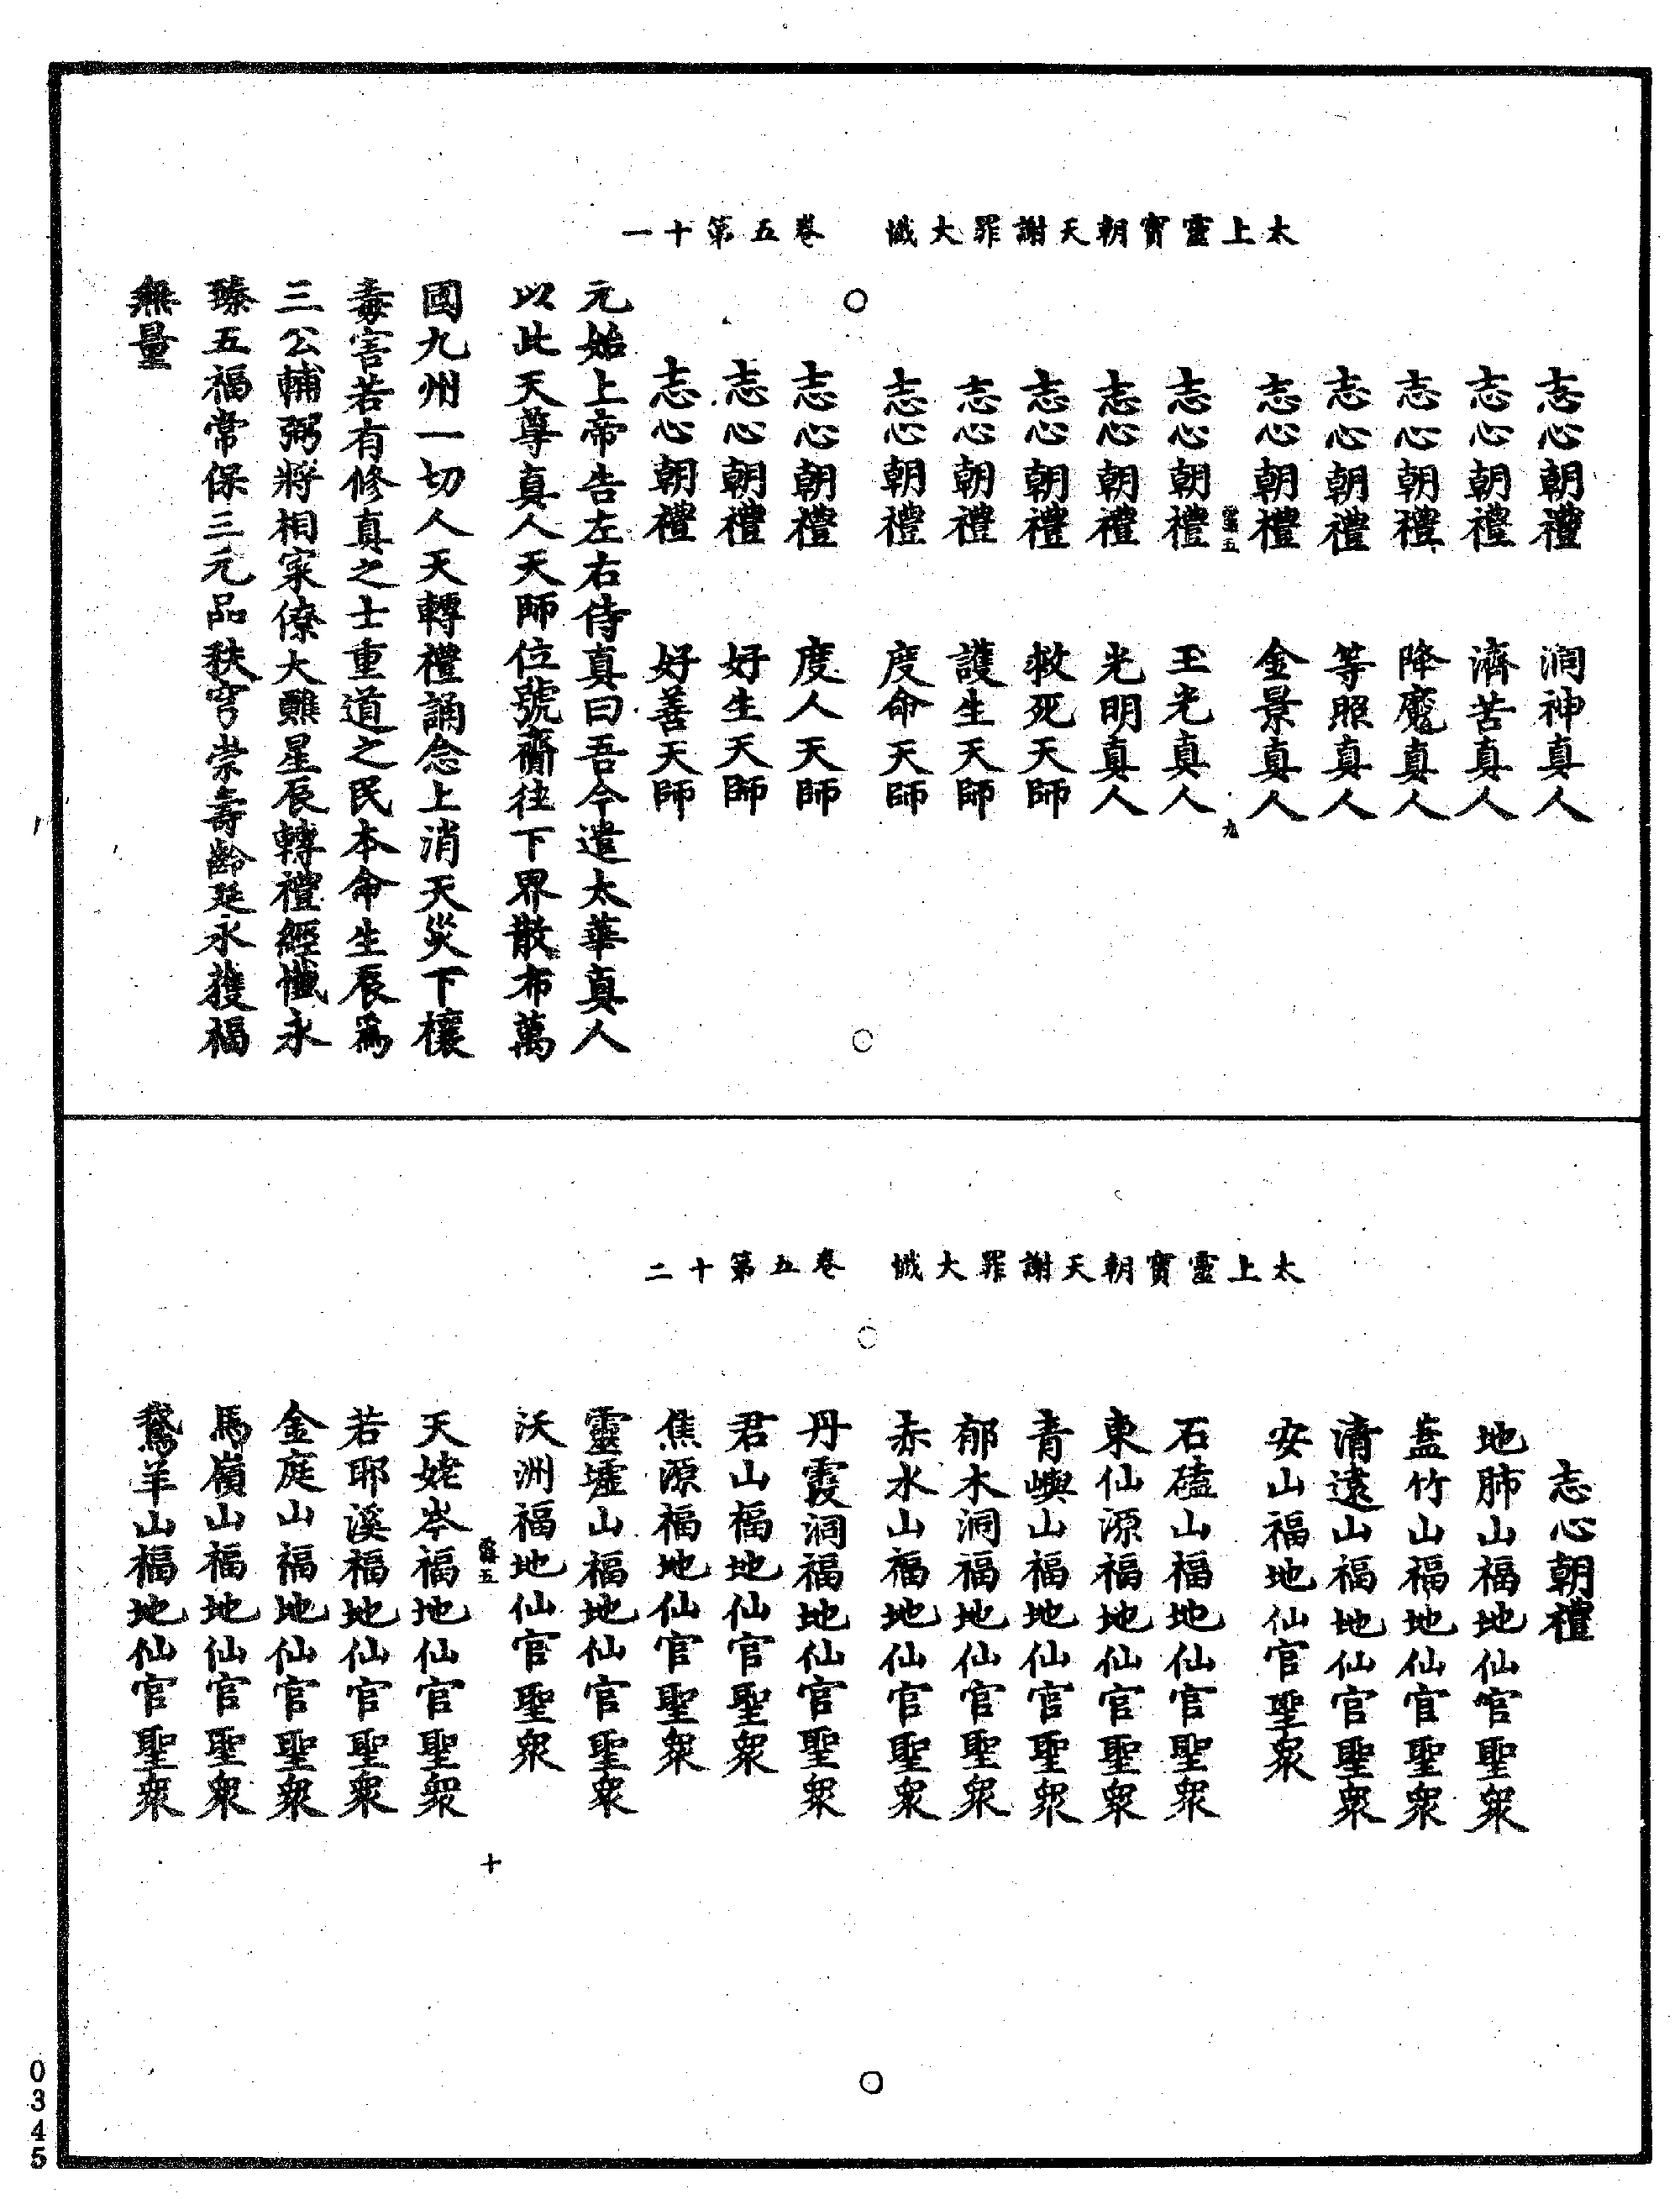 太上靈寶朝天謝罪大懺　卷五第十一
志心朝禮　澗神真人
志心朝禮　濟苦真人
志心朝禮　降魔真人
志心朝禮　等照真人
志心朝禮　金景真人
五　九
志心朝禮　玉光真人
志心朝禮　光明真人
志心朝禮　救死天師
志心朝禮　護生天師
志心朝禮　度命天師
志心朝禮　度人天師
志心朝禮　好生天師
志心朝禮　好善天師
元始上帝告左右侍真曰吾今遣太華真人
以此天尊真人天師位號齎往下界散布萬
國九州一切人天轉禮誦念上消天災下禳
毒害若有修真之士重道之民本命生辰為
三公輔弼將相寀僚大難星辰轉禮經懺永
臻五福常保三元品秩穹崇壽齡延永獲福
無量
太上靈寶朝天謝罪大懺　卷五第十二
志心朝禮
地肺山福地仙官聖衆
蓋竹山福地仙官聖衆
清遠山福地仙官聖衆
安山福地仙官聖衆
石磕山福地仙官聖衆
東仙源福地仙官聖衆
青嶼山福地仙官聖衆
郁木洞福地仙官聖衆
赤水山福地仙官聖衆
丹霞洞福地仙官聖衆
君山福地仙官聖衆
焦源福地仙官聖衆
靈墟山福地仙官聖衆
沃洲福地仙官聖衆
五　十
天姥岑福地仙官聖衆
若耶溪福地仙官聖衆
金庭山福地仙官聖衆
馬嶺山福地仙官聖衆
鵞羊山福地仙官聖衆
0345